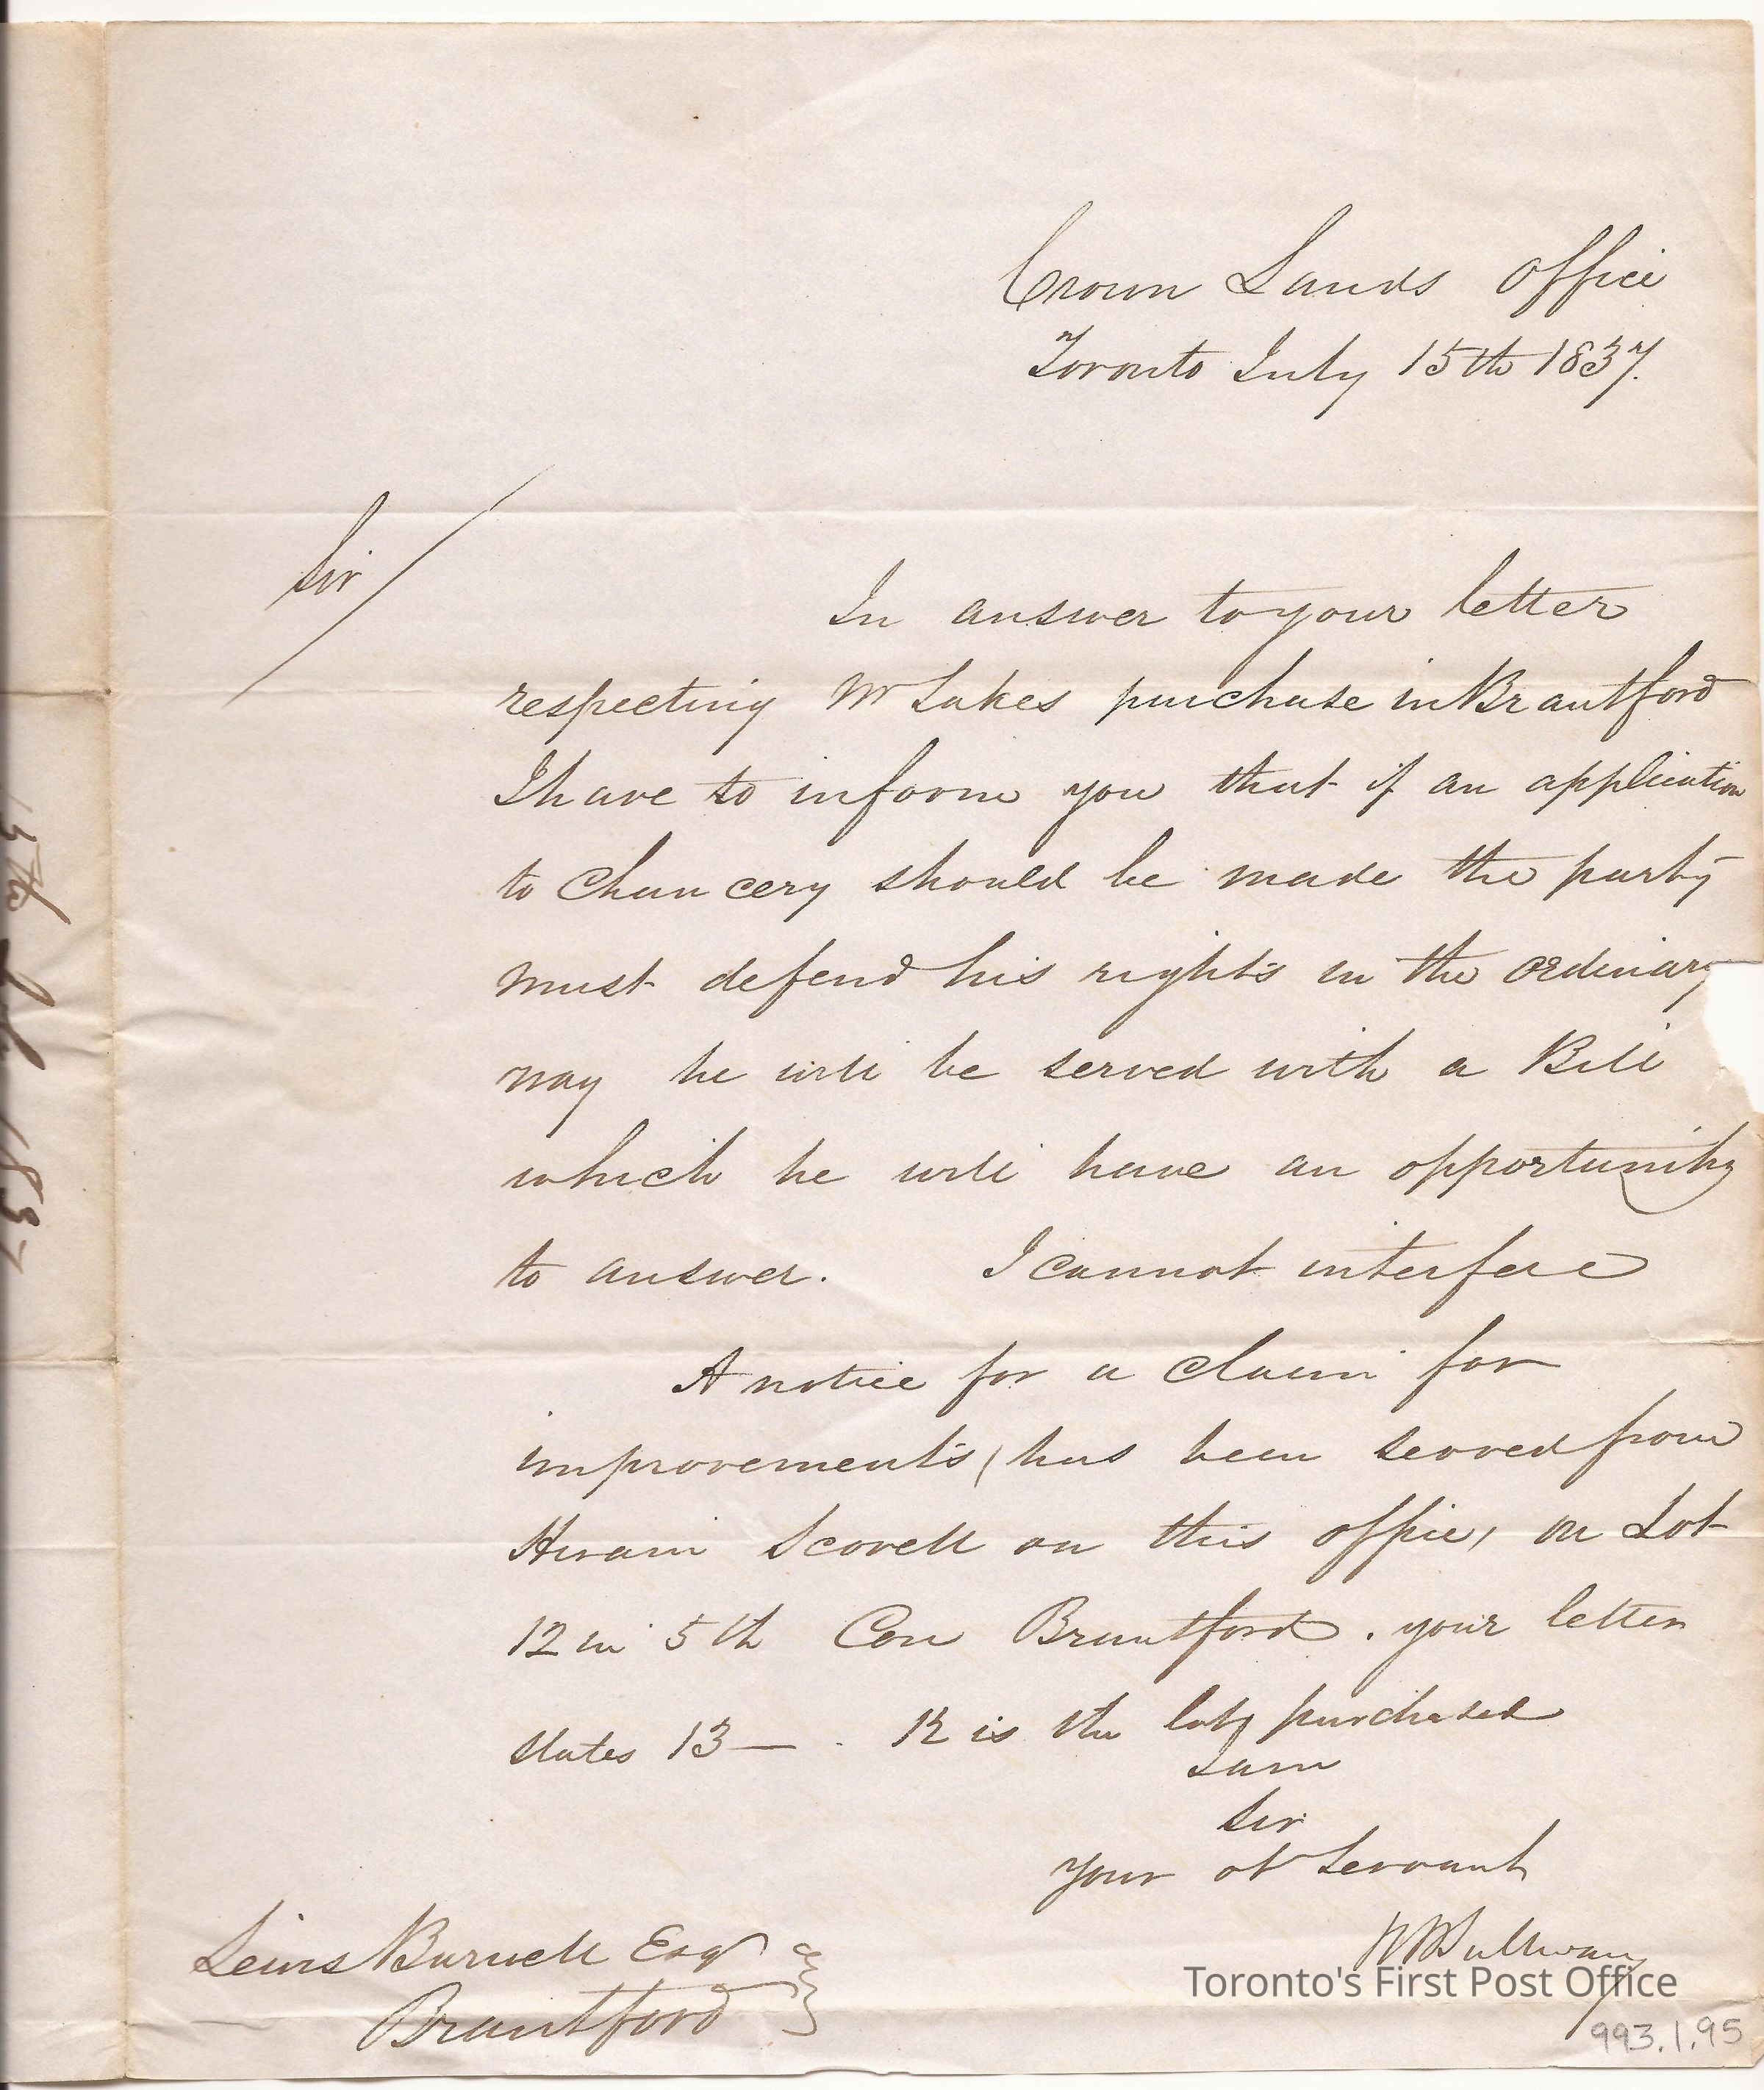 Crown Lands Office
Toronto July 15th 1837.
Sir
In answer to your letter
respecting Mr Lukes purchase in Brantford
I have to inform you that if an application
to Chancery should be made the party
must defend his rights in the ordinary
way he will be served with a Bill
which he will have an opportunity
to answer. I cannot interfere
A notice for a claim for
improvements, has been served from
Hiram Scovell on this office, on Lot
12 in 5th Con Brantford. your letter
states 13 — . 12 is the lot purchased
I am
Sir
your ot Servant
RBSullivan
Lewis Burwell Esqr
Brantford
Toronto's First Post Office
993.1.95
1837